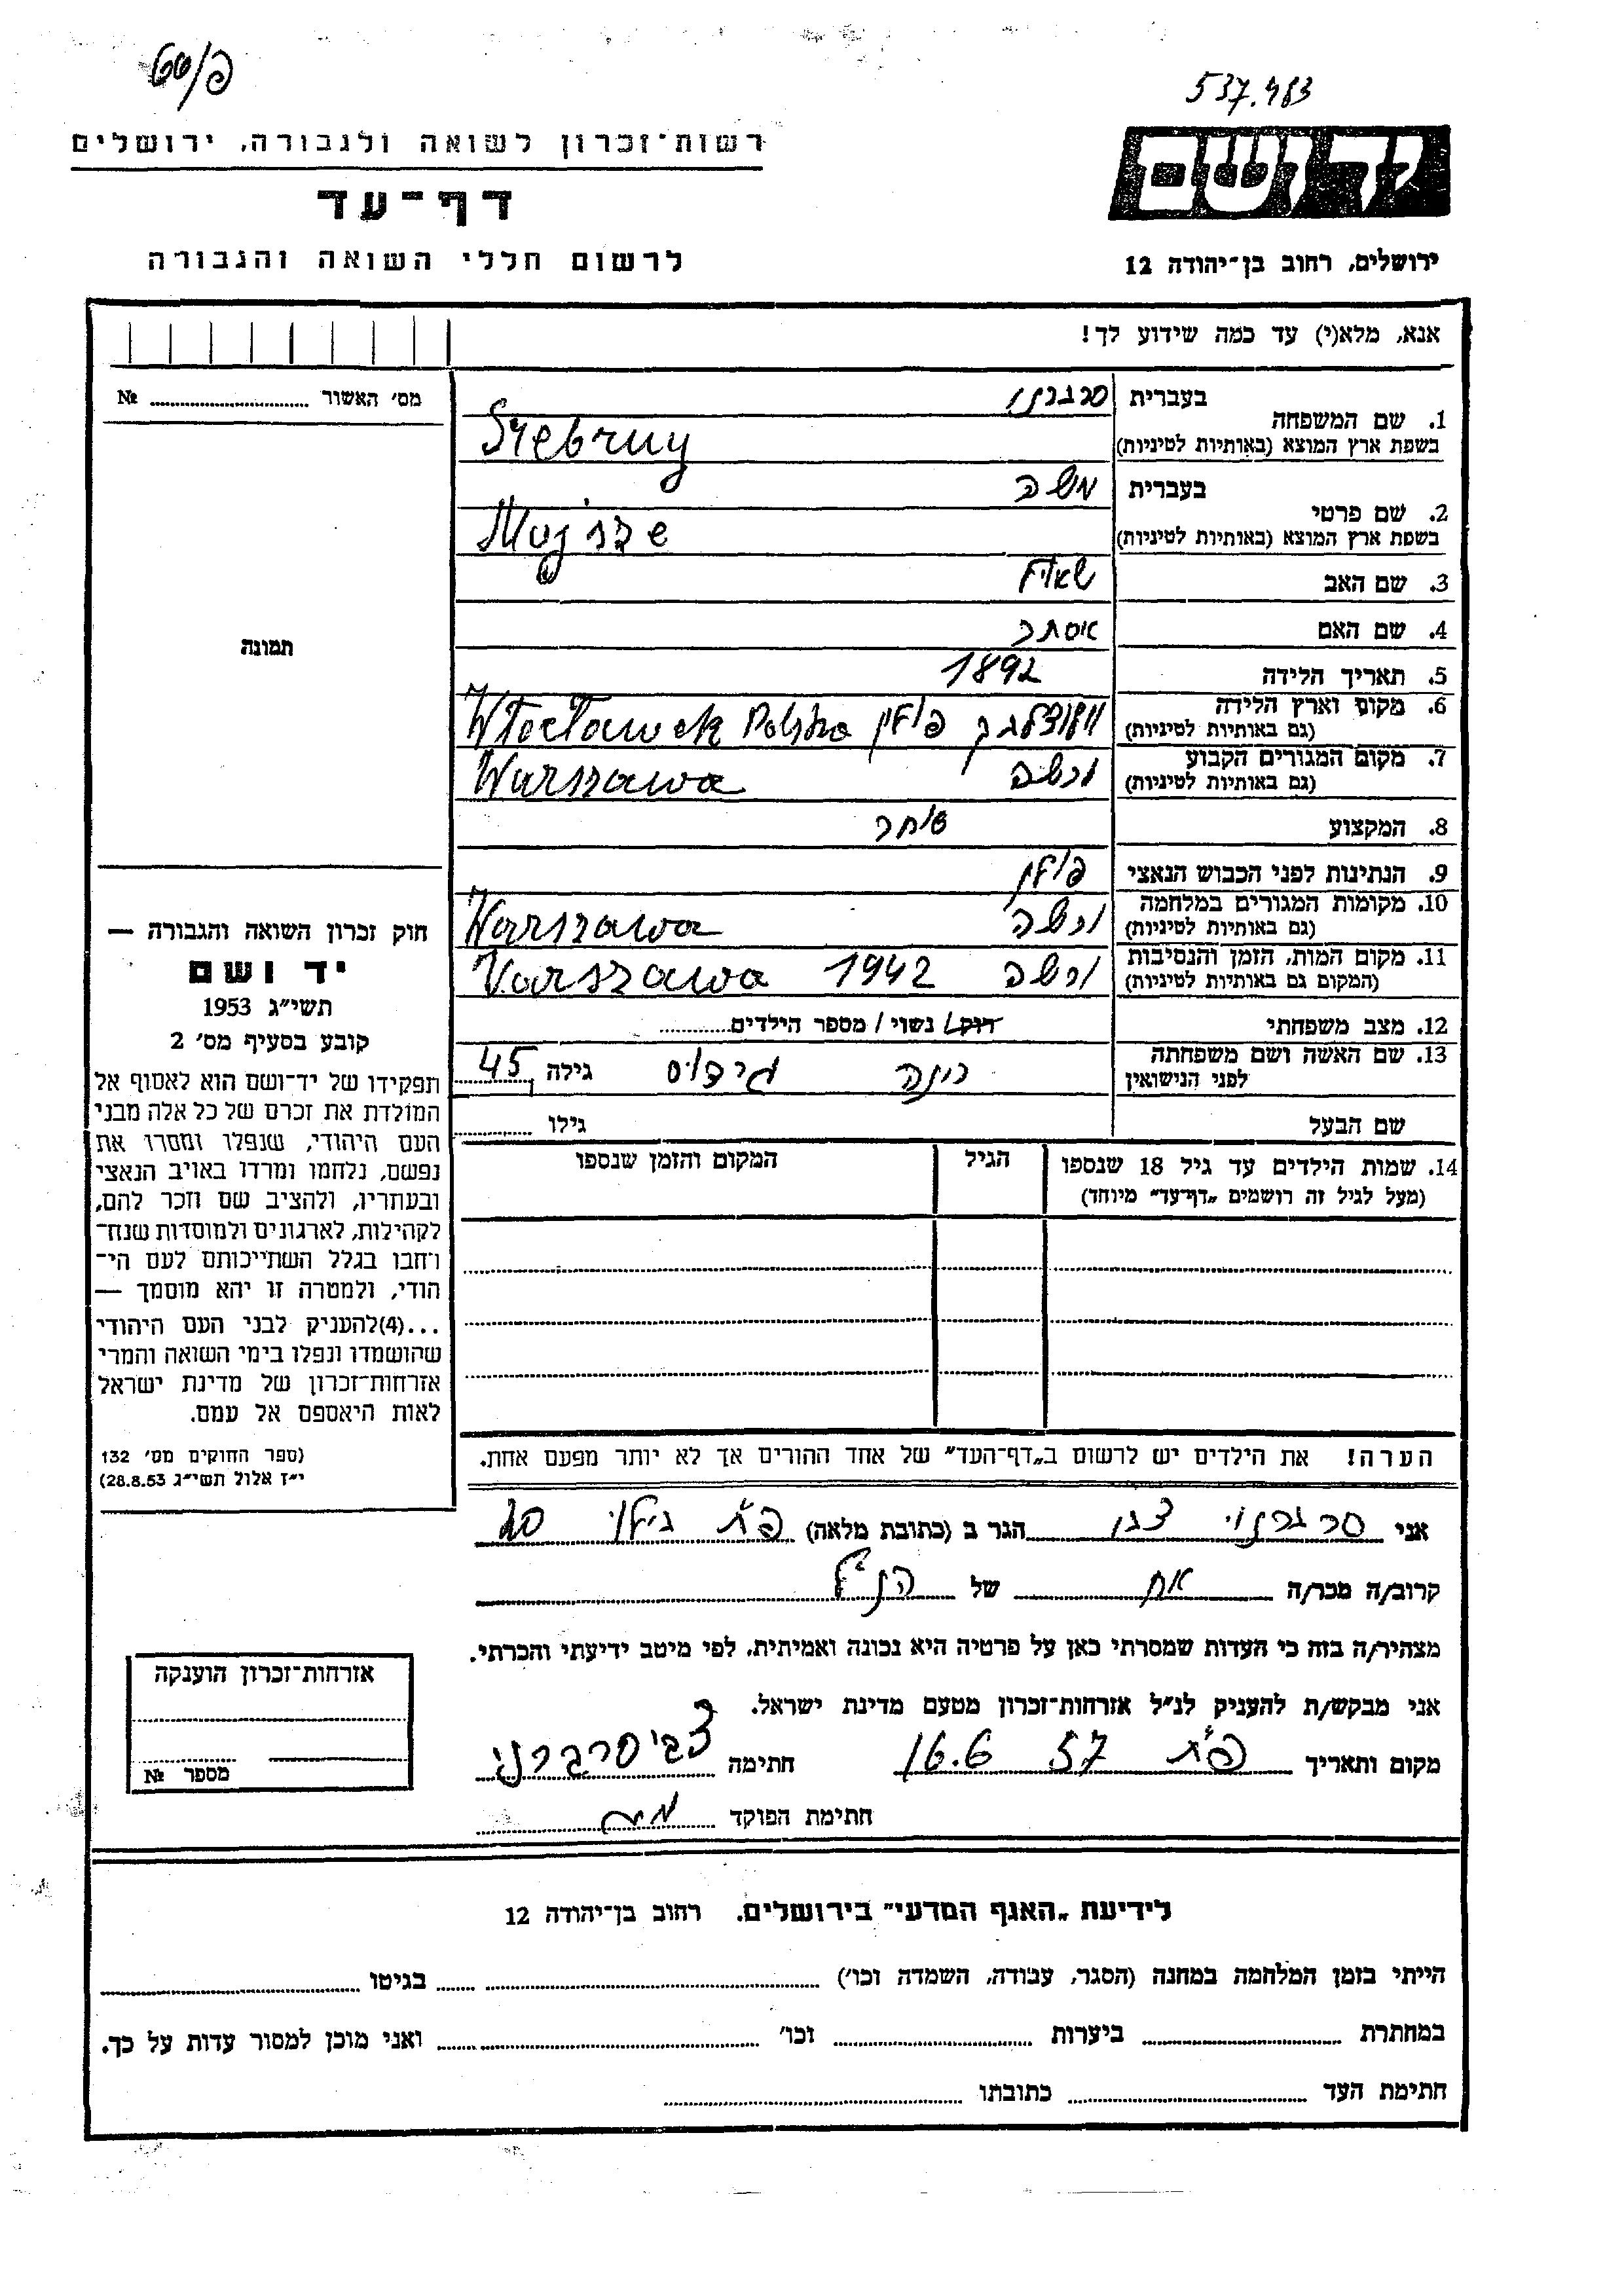 פ/טס
537.483
רשות־זכרון לשואה ולגבורה, ירושלים
דף־עד
לרשום חללי השואה והגבורה
יד ושם
ירושלים, רחוב בן־יהודה 12
אנא, מלא(י) עד כמה שידוע לך!
מס׳ האשור № ........
תמונה
1. שם המשפחה בעברית סרברני
בשפת ארץ המוצא (באותיות לטיניות) Srebrny
2. שם פרטי בעברית משה
בשפת ארץ המוצא (באותיות לטיניות) Mojsze
3. שם האב שאול
4. שם האם אסתר
5. תאריך הלידה 1892
6. מקום וארץ הלידה (גם באותיות לטיניות) פולין Włocławek Polska
7. מקום המגורים הקבוע (גם באותיות לטיניות) ורשה Warszawa
8. המקצוע סוחר
9. הנתינות לפני הכבוש הנאצי פולין
10. מקומות המגורים במלחמה (גם באותיות לטיניות) ורשה Warszawa
11. מקום המות, הזמן והנסיבות (המקום גם באותיות לטיניות) ורשה 1942 Varszawa
12. מצב משפחתי רווק/ נשוי / מספר הילדים........
13. שם האשה ושם משפחתה לפני הנישואין גילה 45
שם הבעל גילו ........
14. שמות הילדים עד גיל 18 שנספו (מעל לגיל זה רושמים „דף־עד” מיוחד)
הגיל
המקום והזמן שנספו
הערה! את הילדים יש לרשום ב„דף־העד” של אחד ההורים אך לא יותר מפעם אחת.
חוק זכרון השואה והגבורה —
יד ושם
תשי״ג 1953
קובע בסעיף מס׳ 2
תפקידו של יד־ושם הוא לאסוף אל
המולדת את זכרם של כל אלה מבני
העם היהודי, שנפלו ומסרו את
נפשם, נלחמו ומרדו באויב הנאצי
ובעוזריו, ולהציב שם וזכר להם,
לקהילות, לארגונים ולמוסדות שנח־
רחבו בגלל השתייכותם לעם הי־
הודי, ולמטרה זו יהא מוסמך —
...(4)להעניק לבני העם היהודי
שהושמדו ונפלו בימי השואה והמרי
אזרחות־זכרון של מדינת ישראל
לאות היאספם אל עמם.
(ספר החוקים מס׳ 132
י״ז אלול תשי״ג 28.8.53)
אני סרברני צבי הגר ב (כתובת מלאה) פ״ת
קרוב/ה מכר/ה אח של הנ״ל
מצהיר/ה בזה כי העדות שמסרתי כאן על פרטיה היא נכונה ואמיתית, לפי מיטב ידיעתי והכרתי.
אני מבקש/ת להעניק לנ״ל אזרחות־זכרון מטעם מדינת ישראל.
מקום ותאריך פ״ת 16.6 57 חתימה צבי סרברני
חתימת הפוקד
אזרחות־זכרון הוענקה
מספר №
לידיעת „האגף המדעי” בירושלים, רחוב בן־יהודה 12
הייתי בזמן המלחמה במחנה (הסגר, עבודה, השמדה וכו׳) ........ בגיטו ........
במחתרת ........ ביערות ........ וכו׳ ........ ואני מוכן למסור עדות על כך.
חתימת העד ........ כתובתו ........